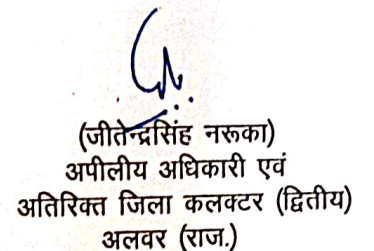 (जीतेन्द्रसिंह नरूका)
अपीलीय अधिकारी एवं
अतिरिक्त जिला कलक्टर (द्वितीय)
अलवर (राज.)